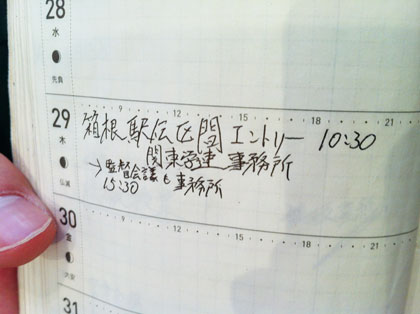 28
水
先負
9 12 15 18 21
29 箱根駅伝区間エントリー 10:30
木 関東学連 事務所
→監督会議も事務所
仏滅 15:30
9 12 15 18 21
30
金
大安
9 12 15 18 21
31